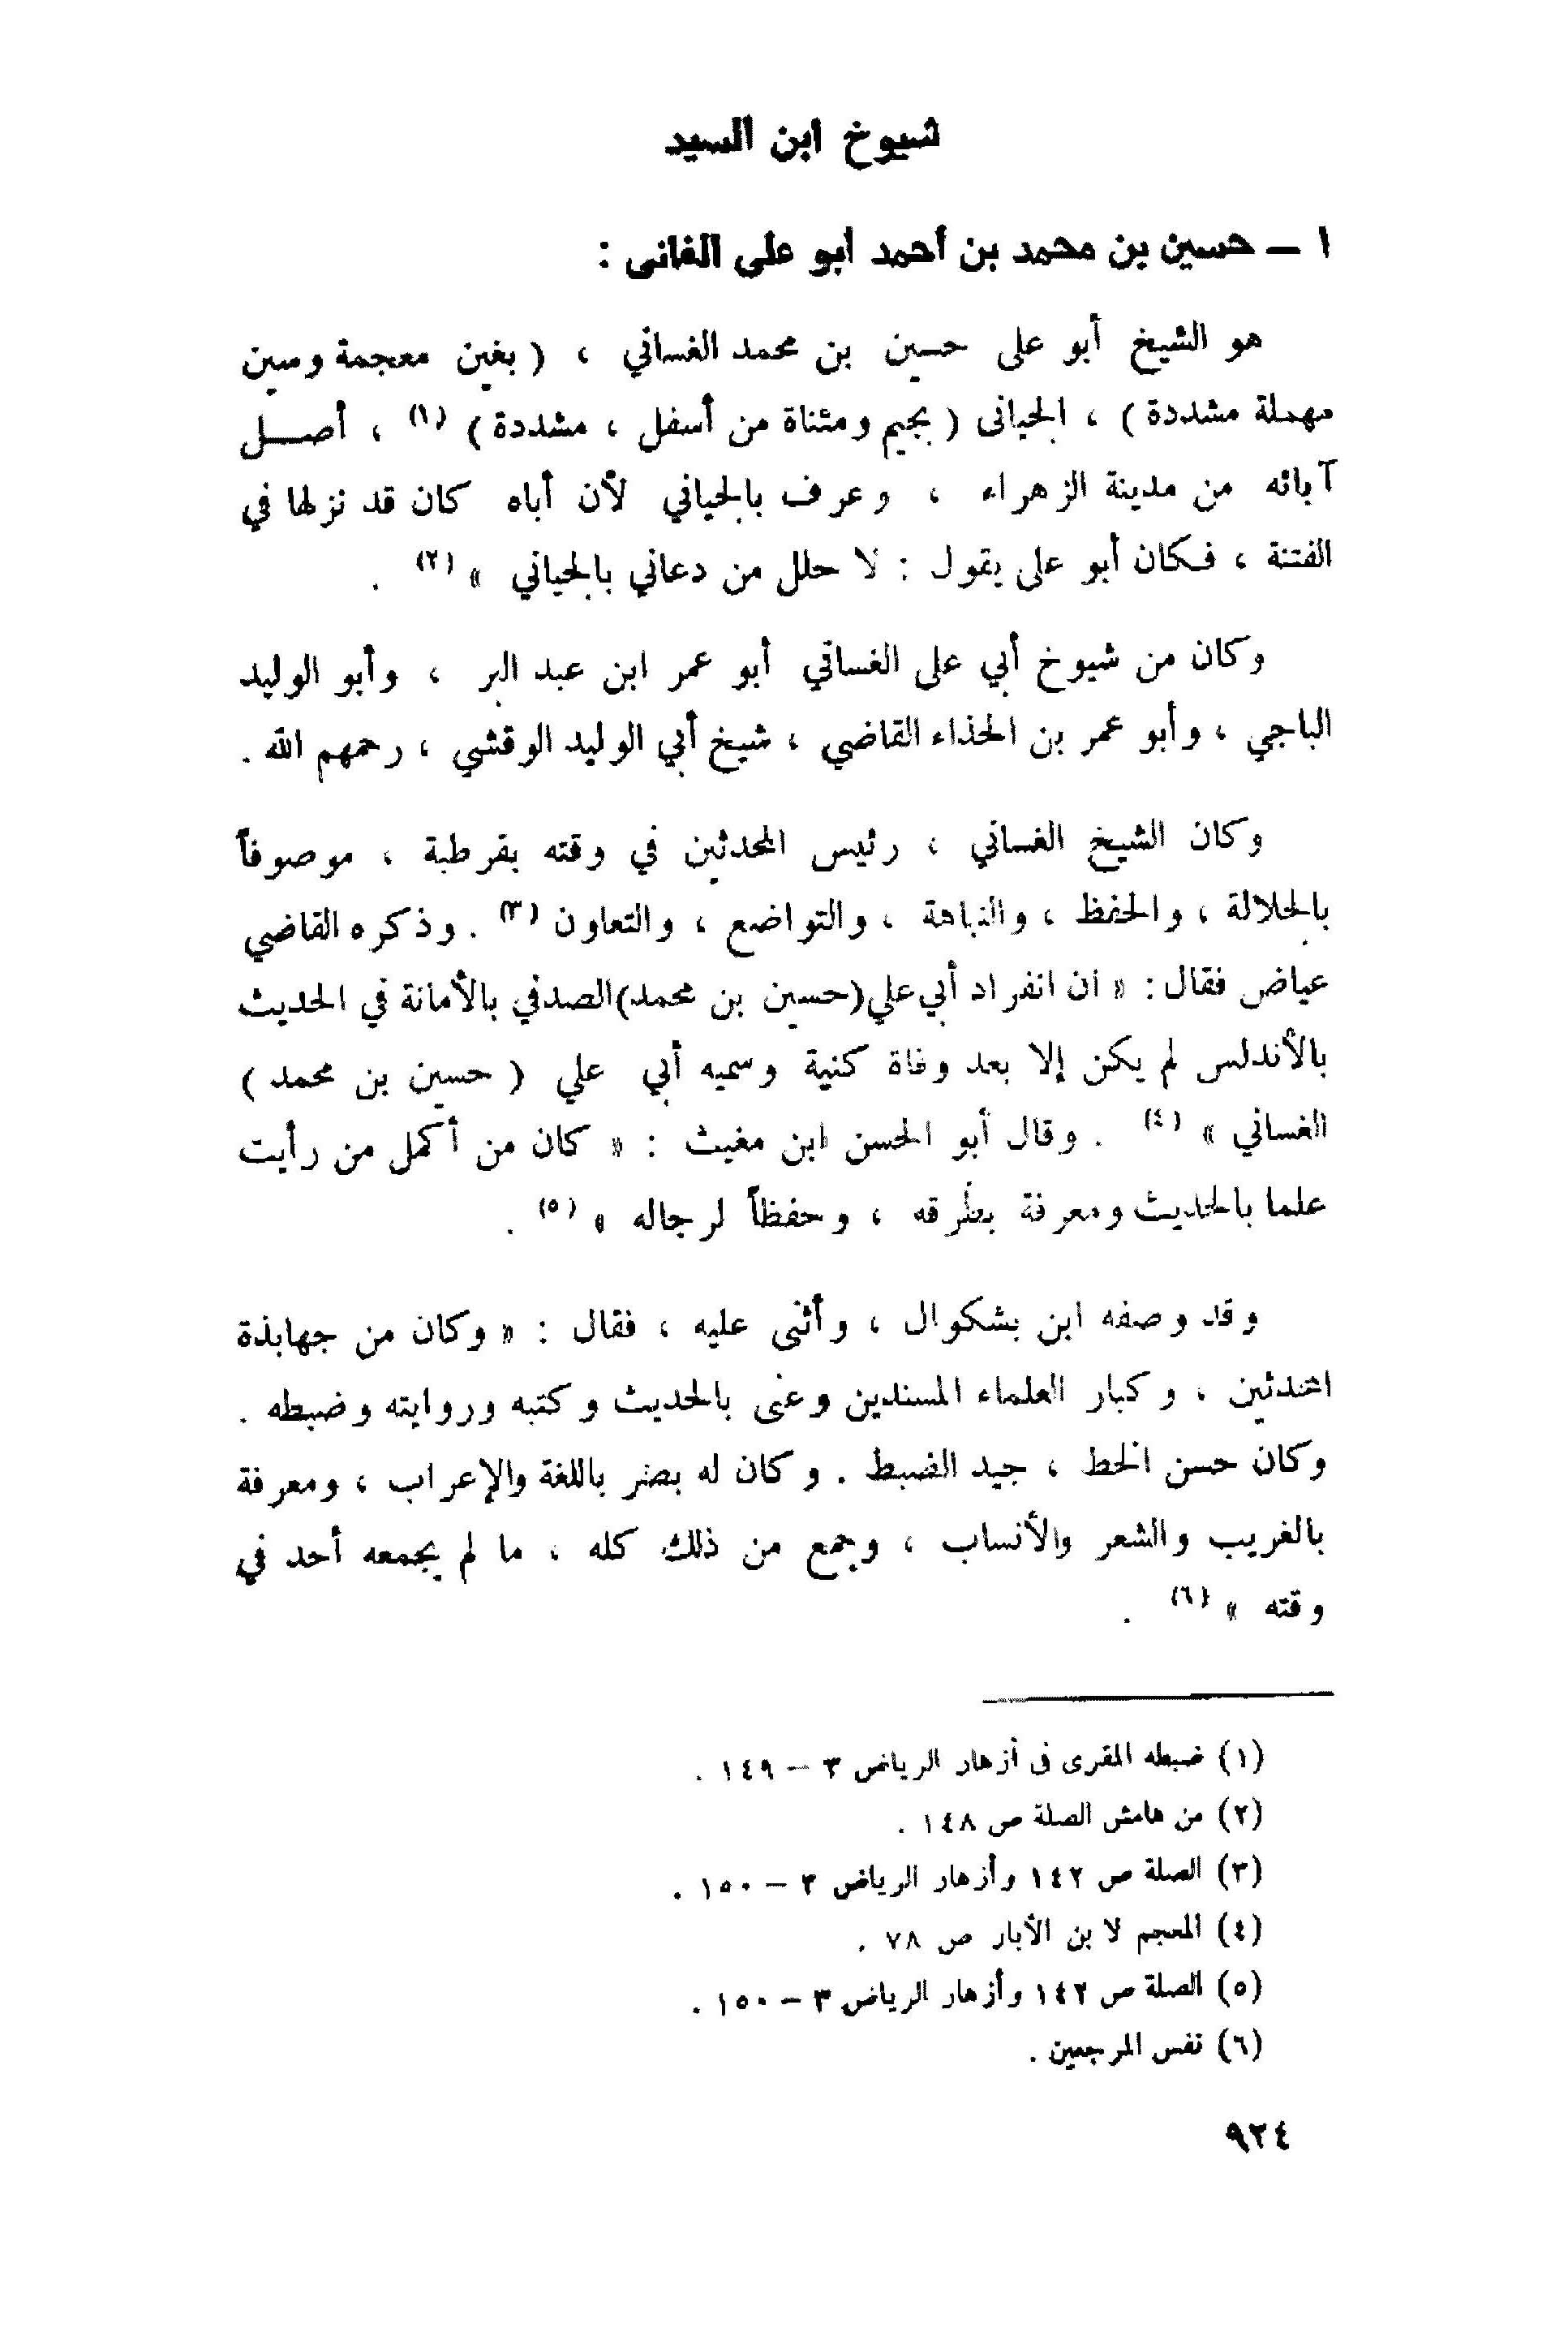 شيوخ ابن السيد
١ — حسين بن محمد بن أحمد أبو على الغانى :
هو الشيخ أبو على حسين بن محمد الغساني ، ( بغين معجمة وسين
مهملة مشددة ) ، الجيانى ( بجيم ومثناة من أسفل ، مشددة ) (١) ، أصــل
آبائه من مدينة الزهراء ، وعرف بالجياني لأن أباه كان قد نزلها في
الفتنة ، فكان أبو على يقول : لا حلل من دعاني بالجياني » (٢) .
وكان من شيوخ أبي على الغساني أبو عمر ابن عبد البر ، وأبو الوليد
الباجي ، وأبو عمر بن الحذاء القاضي ، شيخ أبي الوليد الوقشي ، رحمهم الله .
وكان الشيخ الغساني ، رئيس المحدثين في وقته بقرطبة ، موصوفاً
بالجلالة ، والحفظ ، والنباهة ، والتواضع ، والتعاون (٣) . وذكره القاضي
عياض فقال : « ان انفراد أبي علي (حسين بن محمد) الصدفي بالأمانة في الحديث
بالأندلس لم يكن إلا بعد وفاة كنية وسميه أبي علي ( حسين بن محمد )
الغساني » (٤) . وقال أبو الحسن ابن مغيث : « كان من أكمل من رأيت
علما بالحديث ومعرفة بطرقه ، وحفظاً لرجاله » (٥) .
وقد وصفه ابن بشكوال ، وأثنى عليه ، فقال : « وكان من جهابذة
المحدثين ، وكبار العلماء المسندين وعنى بالحديث وكتبه وروايته وضبطه .
وكان حسن الخط ، جيد الضبط . وكان له بصر باللغة والإعراب ، ومعرفة
بالغريب والشعر والأنساب ، وجمع من ذلك كله ، ما لم يجمعه أحد في
وقته » (٦) .
(١) ضبطه المقرى فى أزهار الرياض ٣ – ١٤٩ .
(٢) من هامش الصلة ص ١٤٨ .
(٣) الصلة ص ١٤٢ وأزهار الرياض ٣ – ١٥٠ .
(٤) المعجم لا بن الأبار ص ٧٨ .
(٥) الصلة ص ١٤٢ وأزهار الرياض ٣ – ١٥٠ .
(٦) نفس المرجعين .
٩٢٤